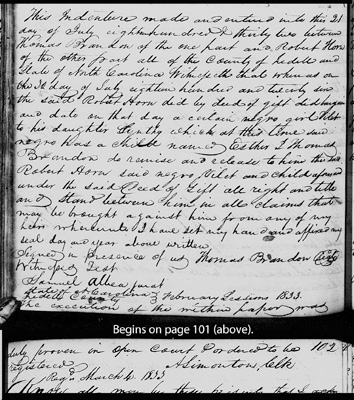 This Indenture made and entered into this 21
day of July eighteen hundred & thirty two between
Thomas Brandon of the one part and Robert Horn
of the other part all of the County of Iredell and
State of North Carolina Witnesseth that whereas on
the 3d day of July eighteen hundred and twenty six
the said Robert Horn did by deed of gift
and date on that day a certain negro girl Vilet
to his daughter which at this time said
negro has a child named Esther I Thomas
Brandon do remise and release to him the said
Robert Horn said negro Vilet and child aforesaid
under the said Deed of Gift all right and title
and stand between him in all claims that
may be brought against him from any of my
heirs whereunto I have set my hand and affixed my
seal day and year above written
Signed in presence of us Thomas Brandon Seal
Witnesses Test
Samuel Allcorn Jurat
State of N. Carolina
Iredell County February Sessions 1833.
The execution of the within paper was
Begins on page 101 (above).
duly proven in Open Court & ordered to be 102
registered A Simonton, Clk
Regd March 4. 1833
Know all men by these presents that I